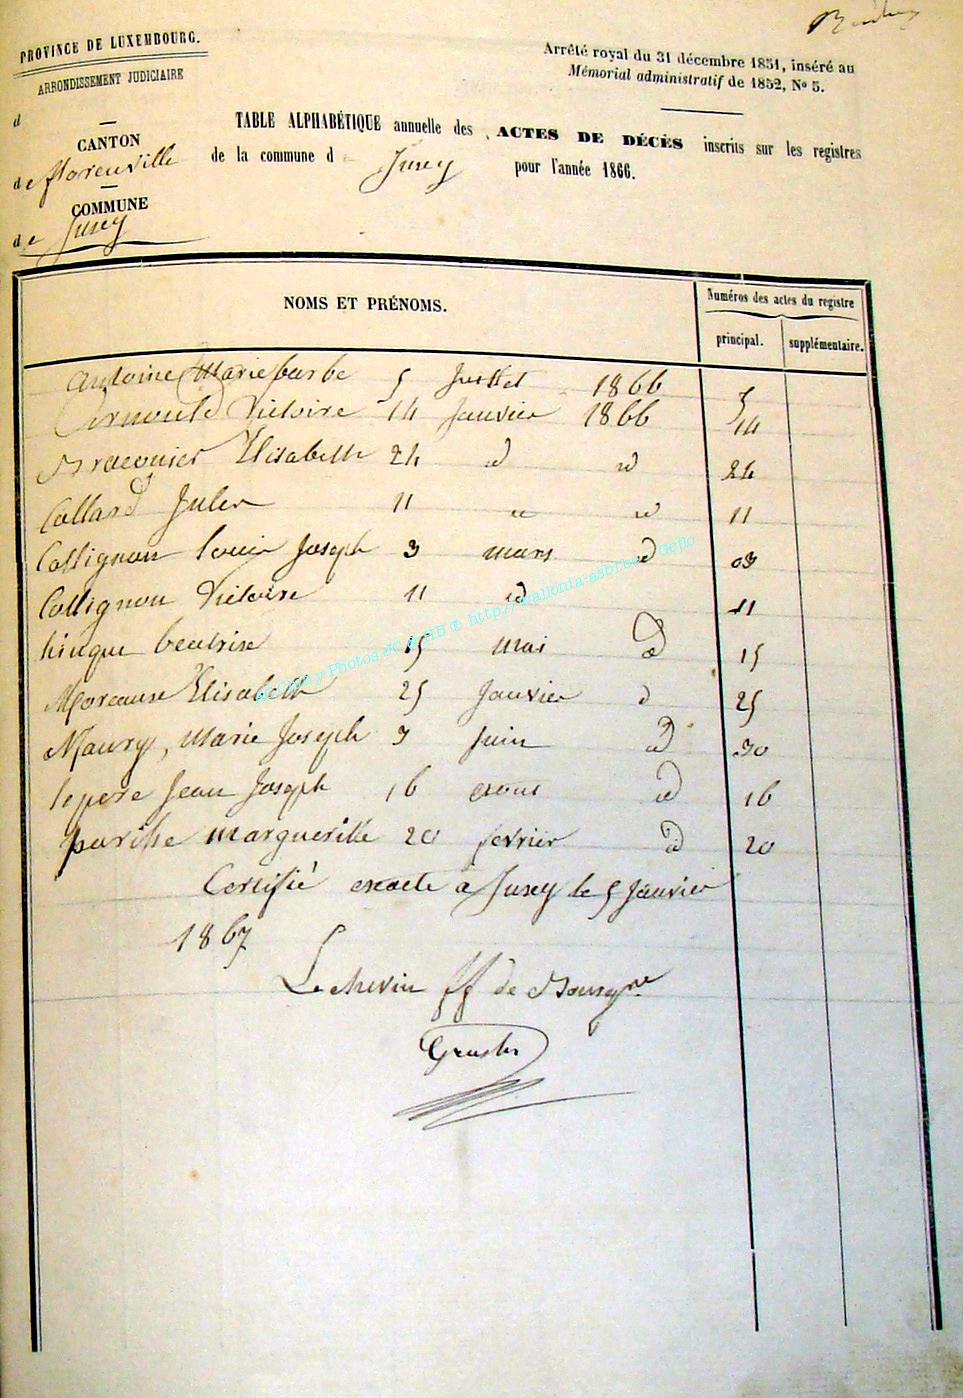 PROVINCE DE LUXEMBOURG.
ARRONDISSEMENT JUDICIAIRE
d
CANTON
de florenville
COMMUNE
de Jusey
Arrêté royal du 31 décembre 1851, inséré au
Mémorial administratif de 1852, No 5.
TABLE ALPHABÉTIQUE annuelle des ACTES DE DÉCÈS inscrits sur les registres
de la commune d Jusey pour l'année 1866.
NOMS ET PRÉNOMS.
Numéros des actes du registre
principal. supplémentaire.
Antoine Marie barbe 5 Juillet 1866 5
Arnould Victoire 14 Janvier 1866 14
Braconier Elisabeth 24 id id 24
Collard Jules 11 id id 11
Collignon louis Joseph 3 mars id 03
Collignon Victoire 11 id 11
hinque beatrise 15 mai id 15
Moreause Elisabeth 25 Janvier d 25
Maury, Marie Joseph 3 Juin id 30
lepere Jean Joseph 16 aout id 16
parisse marguerille 20 fevrier id 20
Certifié exacte a Jusey le 5 Janvier
1867
L'echevin ff de Bourgme